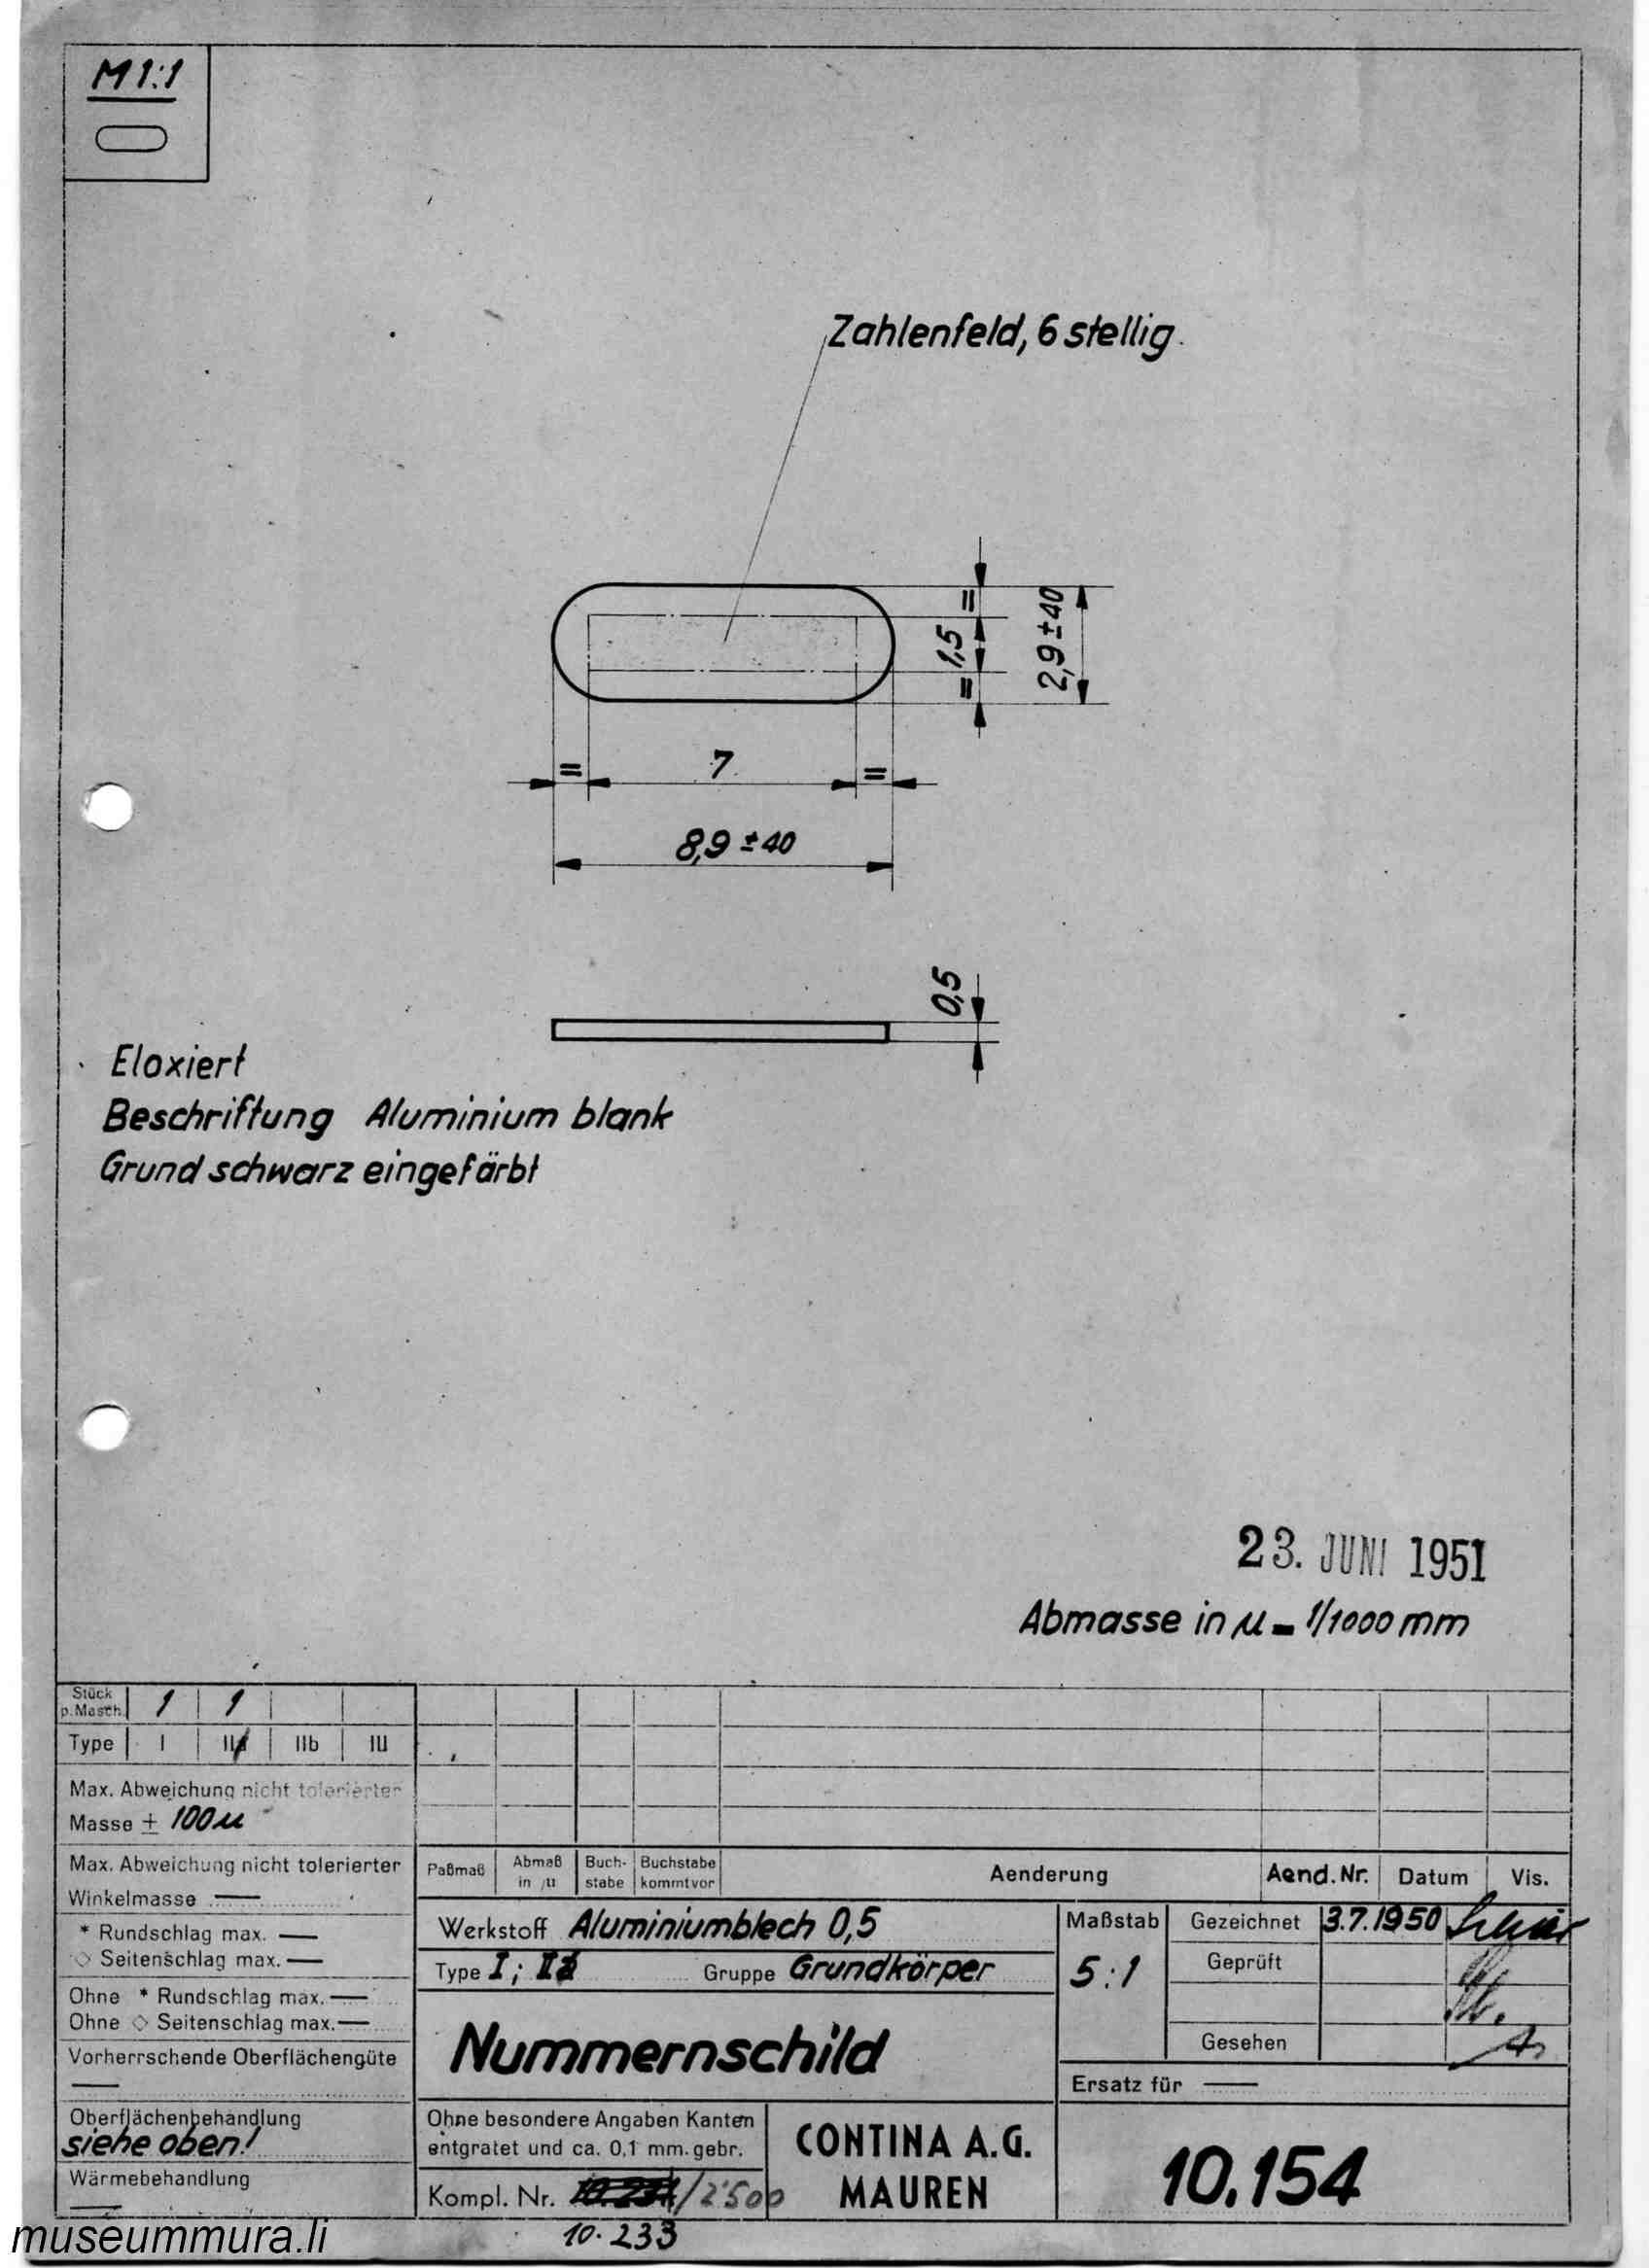 M 1:1
Zahlenfeld, 6 stellig.
=
1,5
=
2,9 ± 40
= 7 =
8,9 ± 40
0,5
Eloxiert
Beschriftung Aluminium blank
Grund schwarz eingefärbt
23. JUNI 1951
Abmasse in µ = 1/1000 mm
Stück
p. Masch. 1 1
Type I II IIb III
Max. Abweichung nicht tolerierter
Masse ± 100µ
Max. Abweichung nicht tolerierter
Winkelmasse —
* Rundschlag max. —
◇ Seitenschlag max. —
Ohne * Rundschlag max. —
Ohne ◇ Seitenschlag max. —
Vorherrschende Oberflächengüte
—
Oberflächenbehandlung
siehe oben!
Wärmebehandlung
—
Paßmaß
Abmaß
in µ
Buch-
stabe
Buchstabe
kommt vor
Aenderung
Aend. Nr.
Datum
Vis.
Werkstoff Aluminiumblech 0,5
Type I; II Gruppe Grundkörper
Nummernschild
Maßstab
5:1
Gezeichnet 3.7.1950
Geprüft
Gesehen
Ersatz für —
Ohne besondere Angaben Kanten
entgratet und ca. 0,1 mm. gebr.
Kompl. Nr. /2500
10.233
CONTINA A.G.
MAUREN
10.154
museummura.li